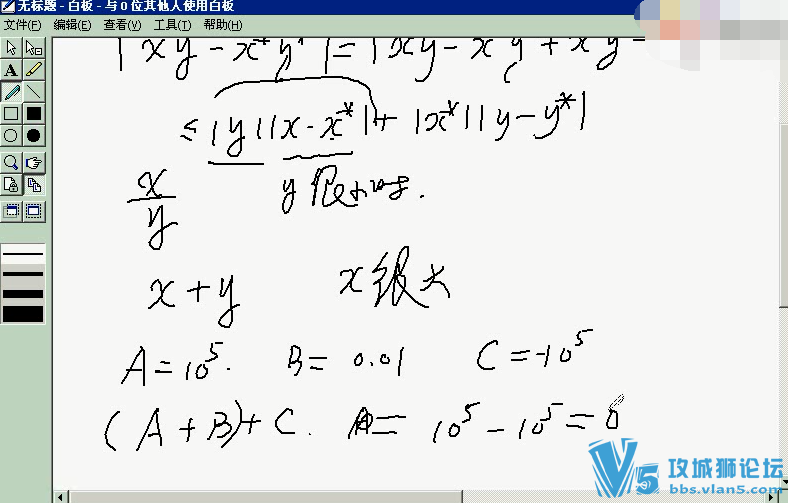 无标题 - 白板 - 与 0 位其他人使用白板
文件(F) 编辑(E) 查看(V) 工具(T) 帮助(H)
A
|xy - x*y*| = |xy - x*y + x*y -
≤ |y||x - x*| + |x*||y - y*|
x/y
y 很大时.
x + y x 很大
A = 10⁵. B = 0.01 C = -10⁵
(A + B) + C. = 10⁵ - 10⁵ = 0
V5 攻城狮论坛
bbs.vlan5.com